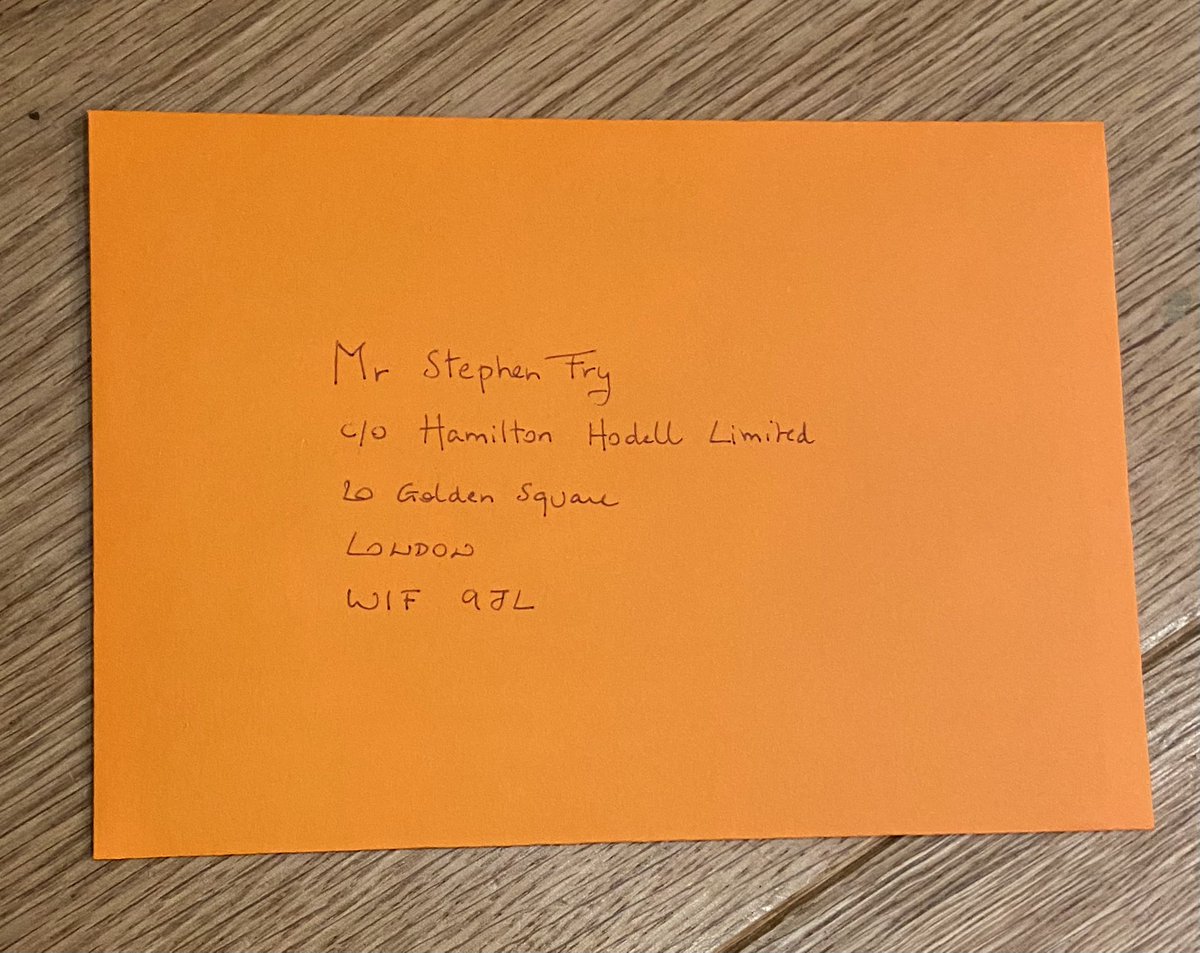 Mr Stephen Fry
c/o Hamilton Hodell Limited
20 Golden Square
LONDON
W1F 9JL